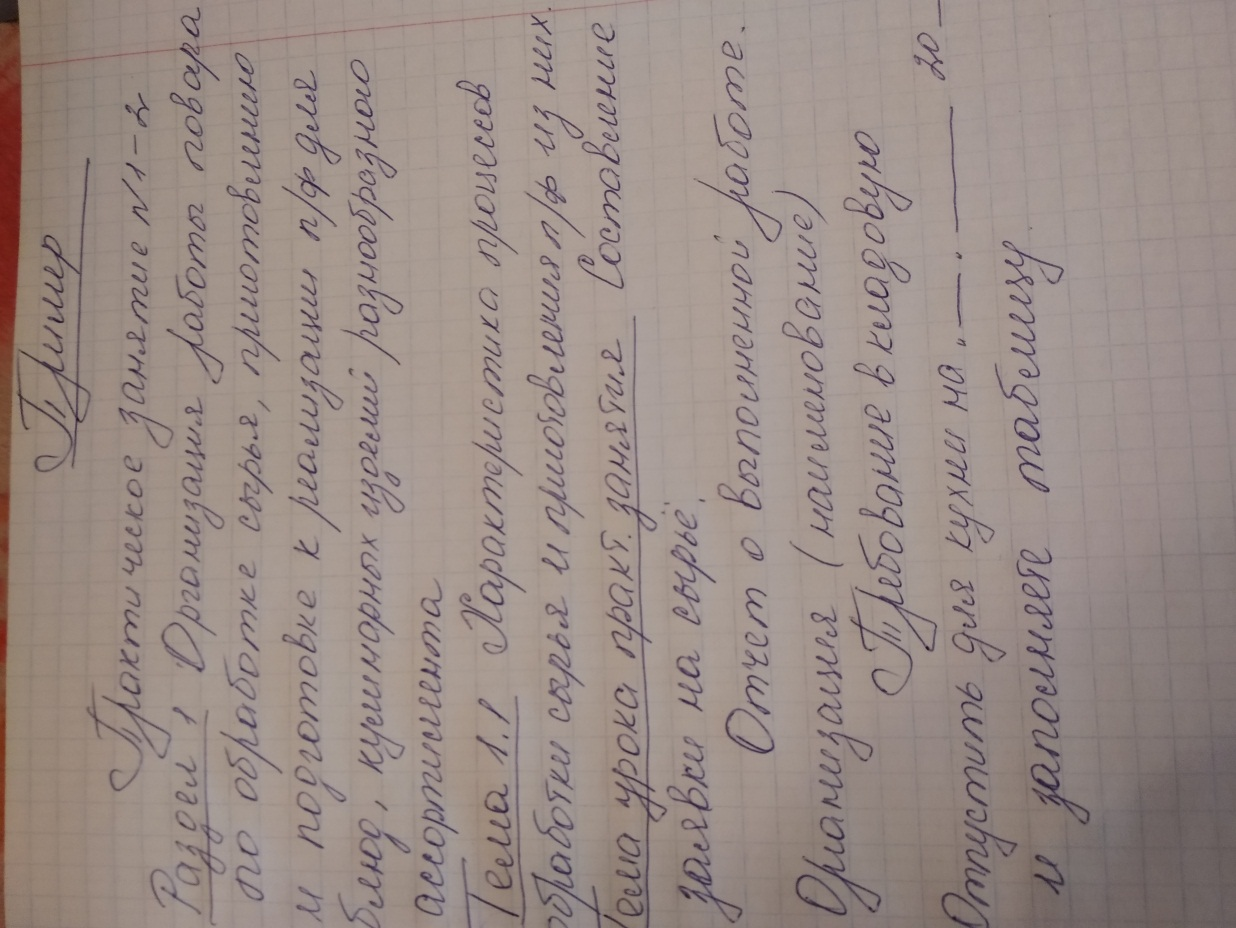 Пример
Практическое занятие №1-2
Раздел 1 Организация работы повара
по обработке сырья, приготовлению
и подготовке к реализации п/ф для
блюд, кулинарных изделий разнообразного
ассортимента
Тема 1.1 Характеристика процессов
обработки сырья и приготовления п/ф из них.
Тема урока практ. занятия Составление
заявки на сырьё.
Отчет о выполненной работе.
Организация (наименование)
Требование в кладовую
Отпустить для кухни на „__." ____ 20_
и заполняете таблицу